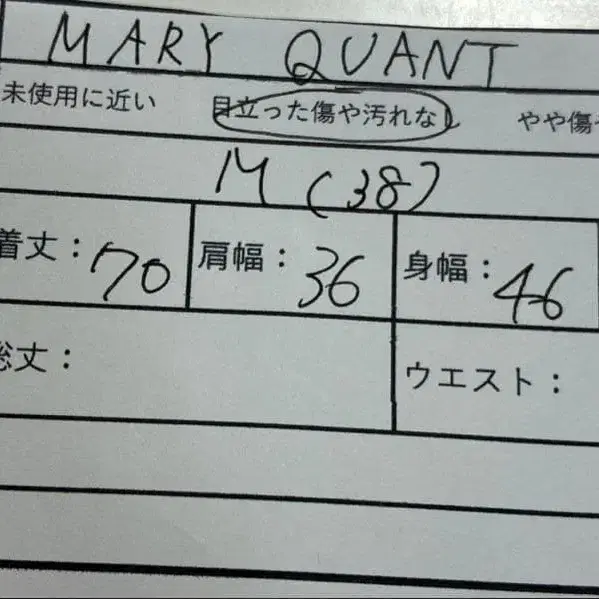 MARY QUANT
未使用に近い 目立った傷や汚れなし やや傷
M (38)
着丈： 70 肩幅： 36 身幅： 46
総丈： ウエスト：